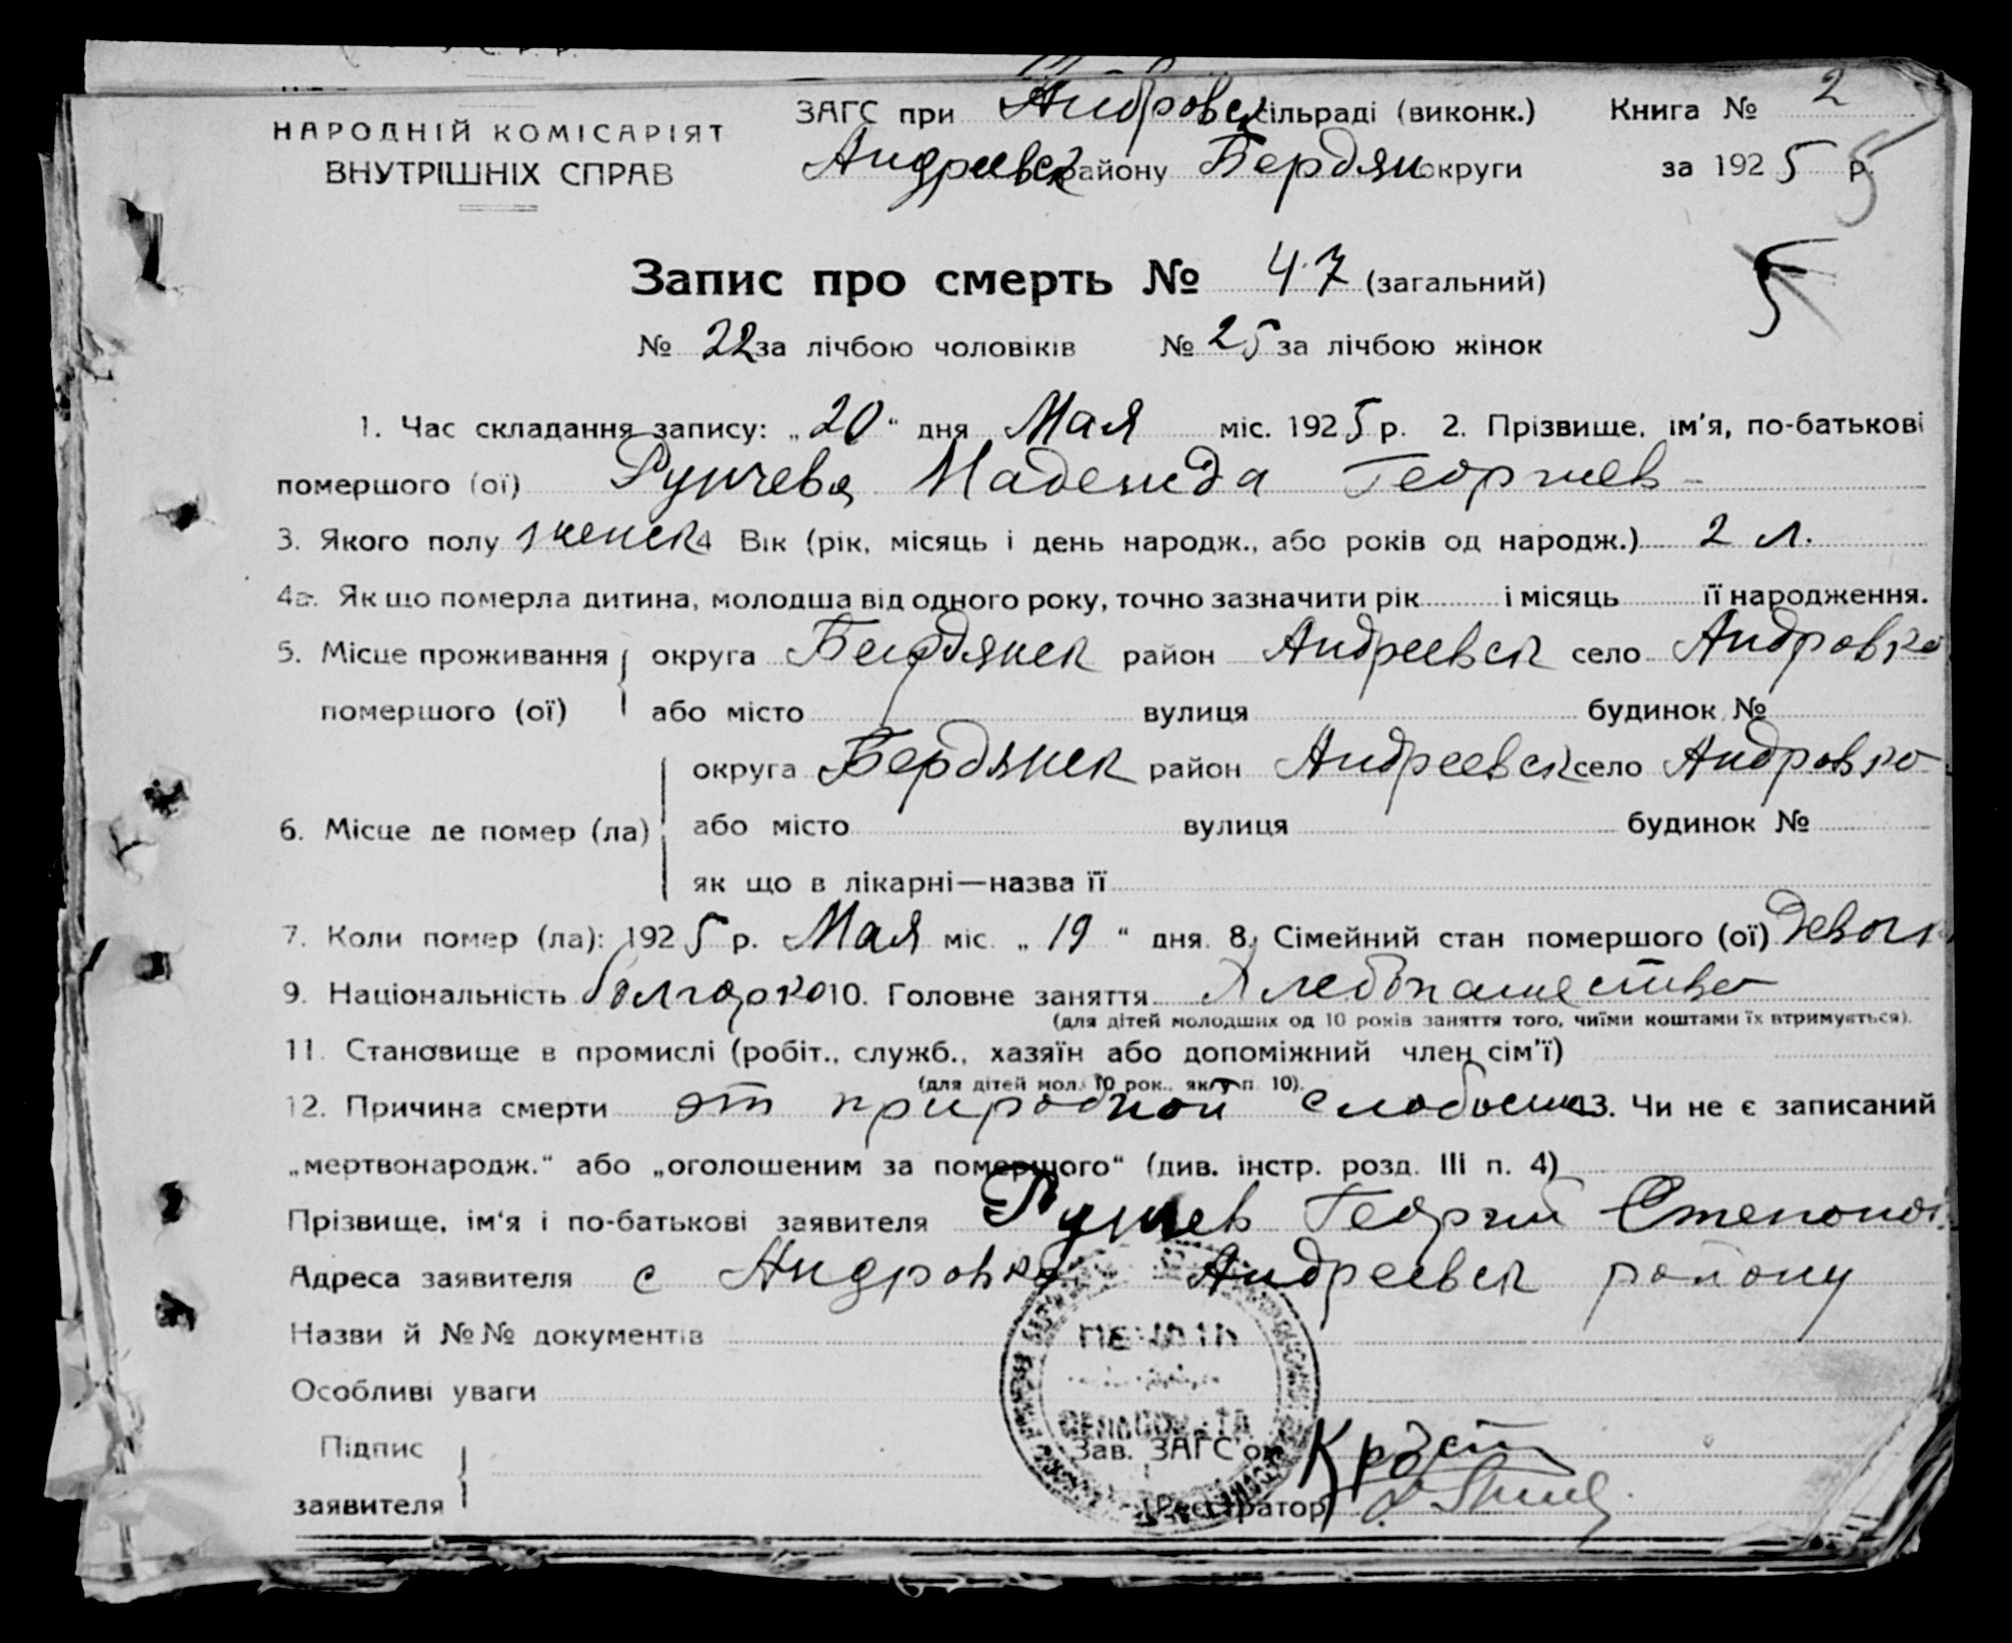 НАРОДНІЙ КОМІСАРІЯТ
ВНУТРІШНІХ СПРАВ
ЗАГС при Андровск сільраді (виконк.)
Андреевск району Бердян округи
Книга № 2
за 1925 р.
5
Запис про смерть № 47 (загальний)
5
№ 22 за лічбою чоловіків № 25 за лічбою жінок
1. Час складання запису: „20“ дня Мая міс. 1925 р. 2. Прізвище, ім'я, по-батькові
помершого (ої) Рунчева Надежда Георгиев-
3. Якого полу женск 4 Вік (рік, місяць і день народж., або років од народж.) 2 л.
4а. Як що померла дитина, молодша від одного року, точно зазначити рік і місяць її народження.
5. Місце проживання округа Бердянск район Андреевск село Андровка
помершого (ої) або місто вулиця будинок №
округа Бердянск район Андреевск село Андровка
6. Місце де помер (ла) або місто вулиця будинок №
як що в лікарні—назва її
7. Коли помер (ла): 1925 р. Мая міс. „19“ дня. 8. Сімейний стан помершого (ої) Девочк
9. Національність болгарка 10. Головне заняття Хлебопашество
(для дітей молодших од 10 років заняття того, чиїми коштами їх втримується).
11. Становище в промислі (робіт., служб., хазяїн або допоміжний член сім'ї)
(для дітей мол. 10 рок., як у п. 10).
12. Причина смерти от природной слабости 13. Чи не є записаний
„мертвонародж.“ або „оголошеним за помершого“ (див. інстр. розд. III п. 4)
Прізвище, ім'я і по-батькові заявителя Рунчев Георгий Степанов
Адреса заявителя с Андровка Андреевск району
Назви й №№ документів
Особливі уваги
ПЕЧАТЬ
Підпис
заявителя
Зав. ЗАГС'ом
Реєстратор